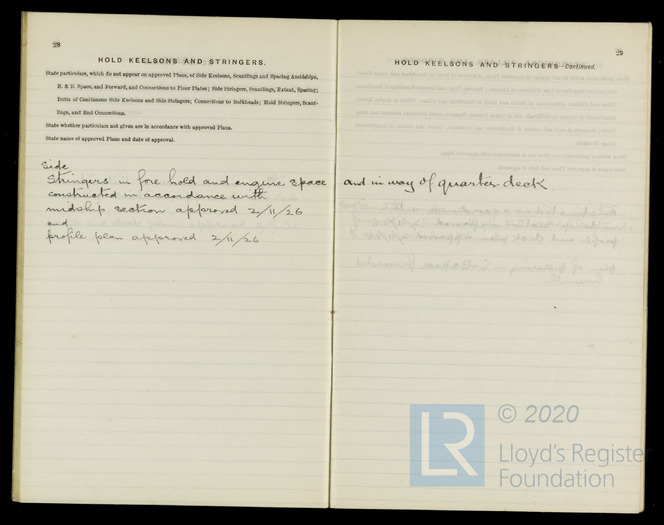 28
HOLD KEELSONS AND STRINGERS.
State particulars, which do not appear on approved Plans, of Side Keelsons, Scantlings and Spacing Amidships,
E. & B. Space, and Forward, and Connections to Floor Plates; Side Stringers, Scantlings, Extent, Spacing;
Butts of Continuous Side Keelsons and Side Stringers; Connections to Bulkheads; Hold Stringers, Scant-
lings, and End Connections.
State whether particulars not given are in accordance with approved Plans.
State name of approved Plans and date of approval.
Side
Stringers in fore hold and engine space
constructed in accordance with
midship section approved 2/11/26
and
profile plan approved 2/11/26
29
HOLD KEELSONS AND STRINGERS—Continued.
and in way of quarter deck
LR
© 2020
Lloyd's Register
Foundation